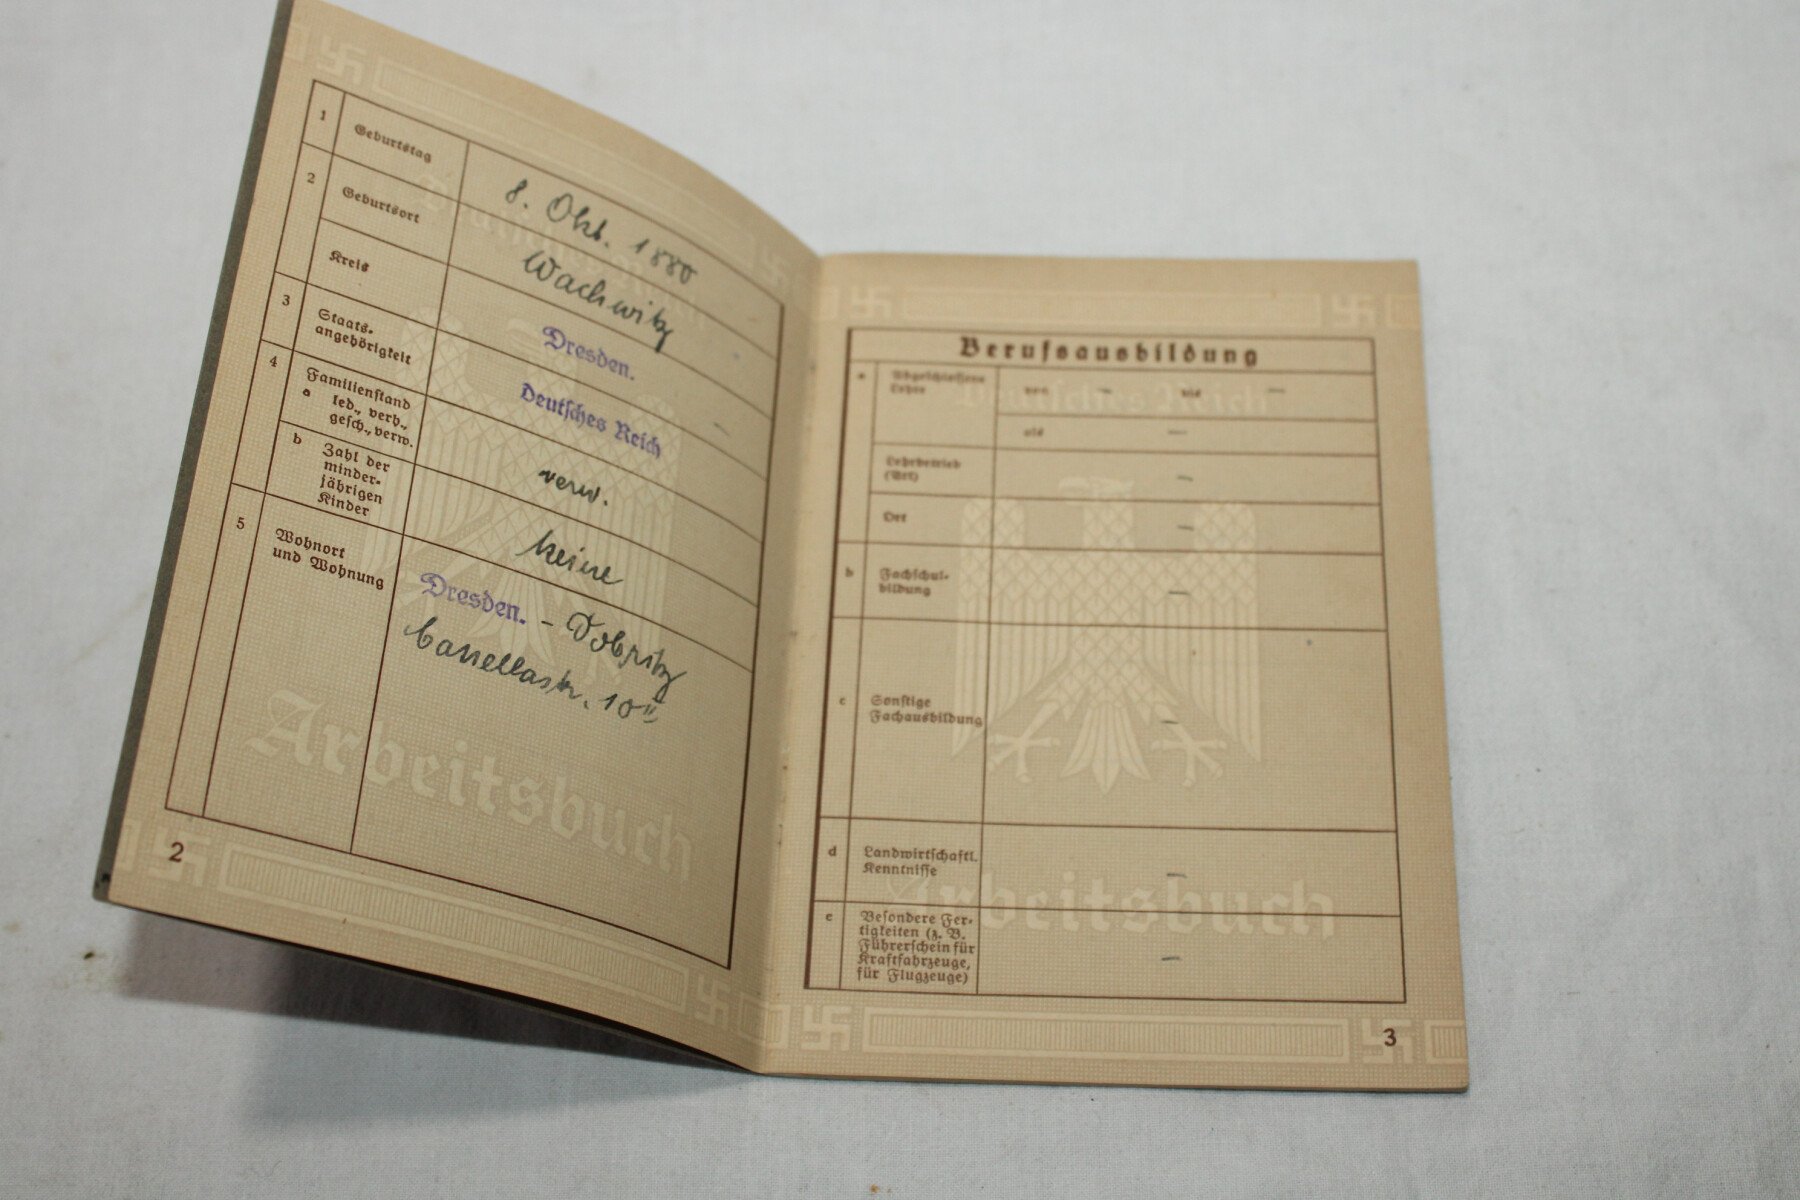 1 Geburtstag 8. Okt. 1880
2 Geburtsort Wachwitz
Kreis Dresden.
3 Staats-
angehörigkeit Deutsches Reich
4 Familienstand
a led., verh.,
gesch., verw. verw.
b Zahl der
minder-
jährigen
Kinder keine
5 Wohnort
und Wohnung Dresden. - Dobritz
Casellastr. 10 II
Arbeitsbuch
2
Berufsausbildung
a Abgeschlossene
Lehre von — bis —
als —
Lehrbetrieb
(Art) —
Ort —
b Fachschul-
bildung —
c Sonstige
Fachausbildung —
d Landwirtschaftl.
Kenntnisse —
e Besondere Fer-
tigkeiten (z. B.
Führerschein für
Kraftfahrzeuge,
für Flugzeuge) —
Deutsches Reich
Arbeitsbuch
3